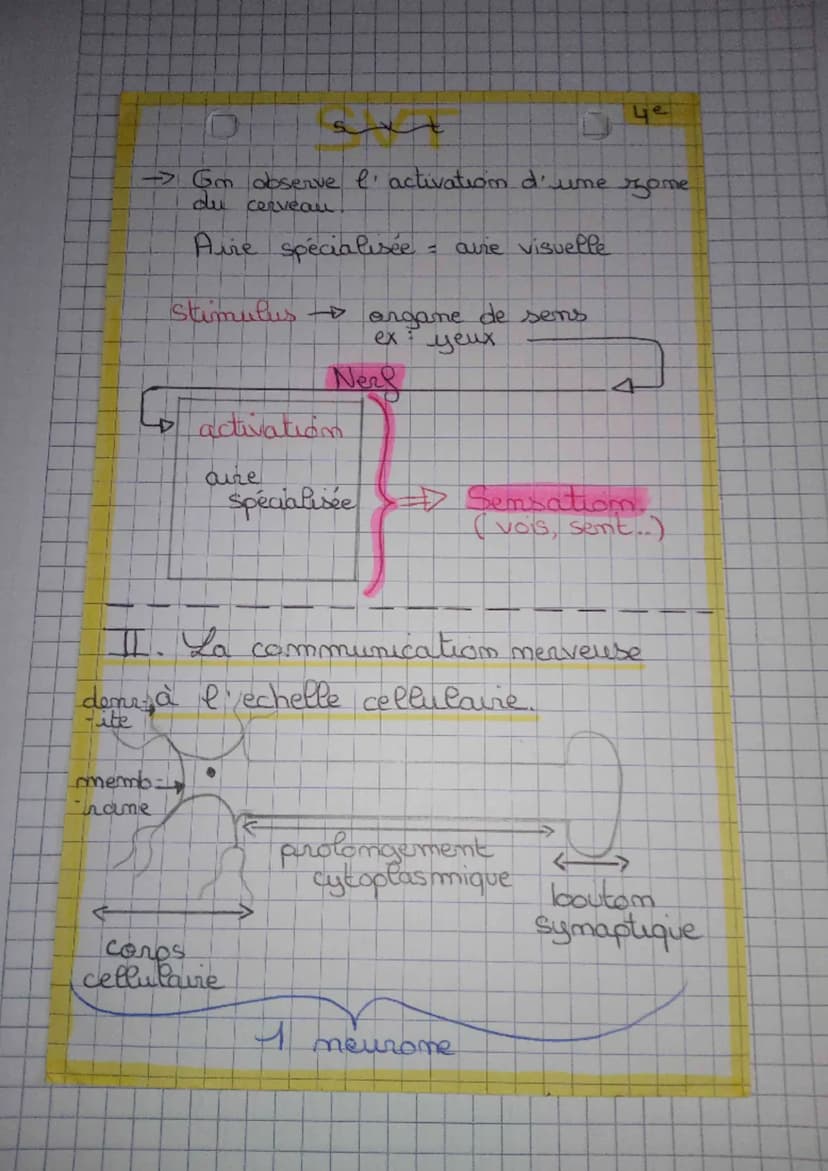 SVT
svt
4e
→ On observe l'activation d'une zone
du cerveau.
Aire spécialisée = aire visuelle
Stimulus → organe de sens
ex : yeux
Nerf
activation
aire
spécialisée
⇒ Sensation.
(vois, sent...)
II. La communication nerveuse
à l'echelle cellulaire.
dend-
-rite
memb-
-rane
prolongement
cytoplasmique
bouton
synaptique
corps
cellulaire
1 neurone